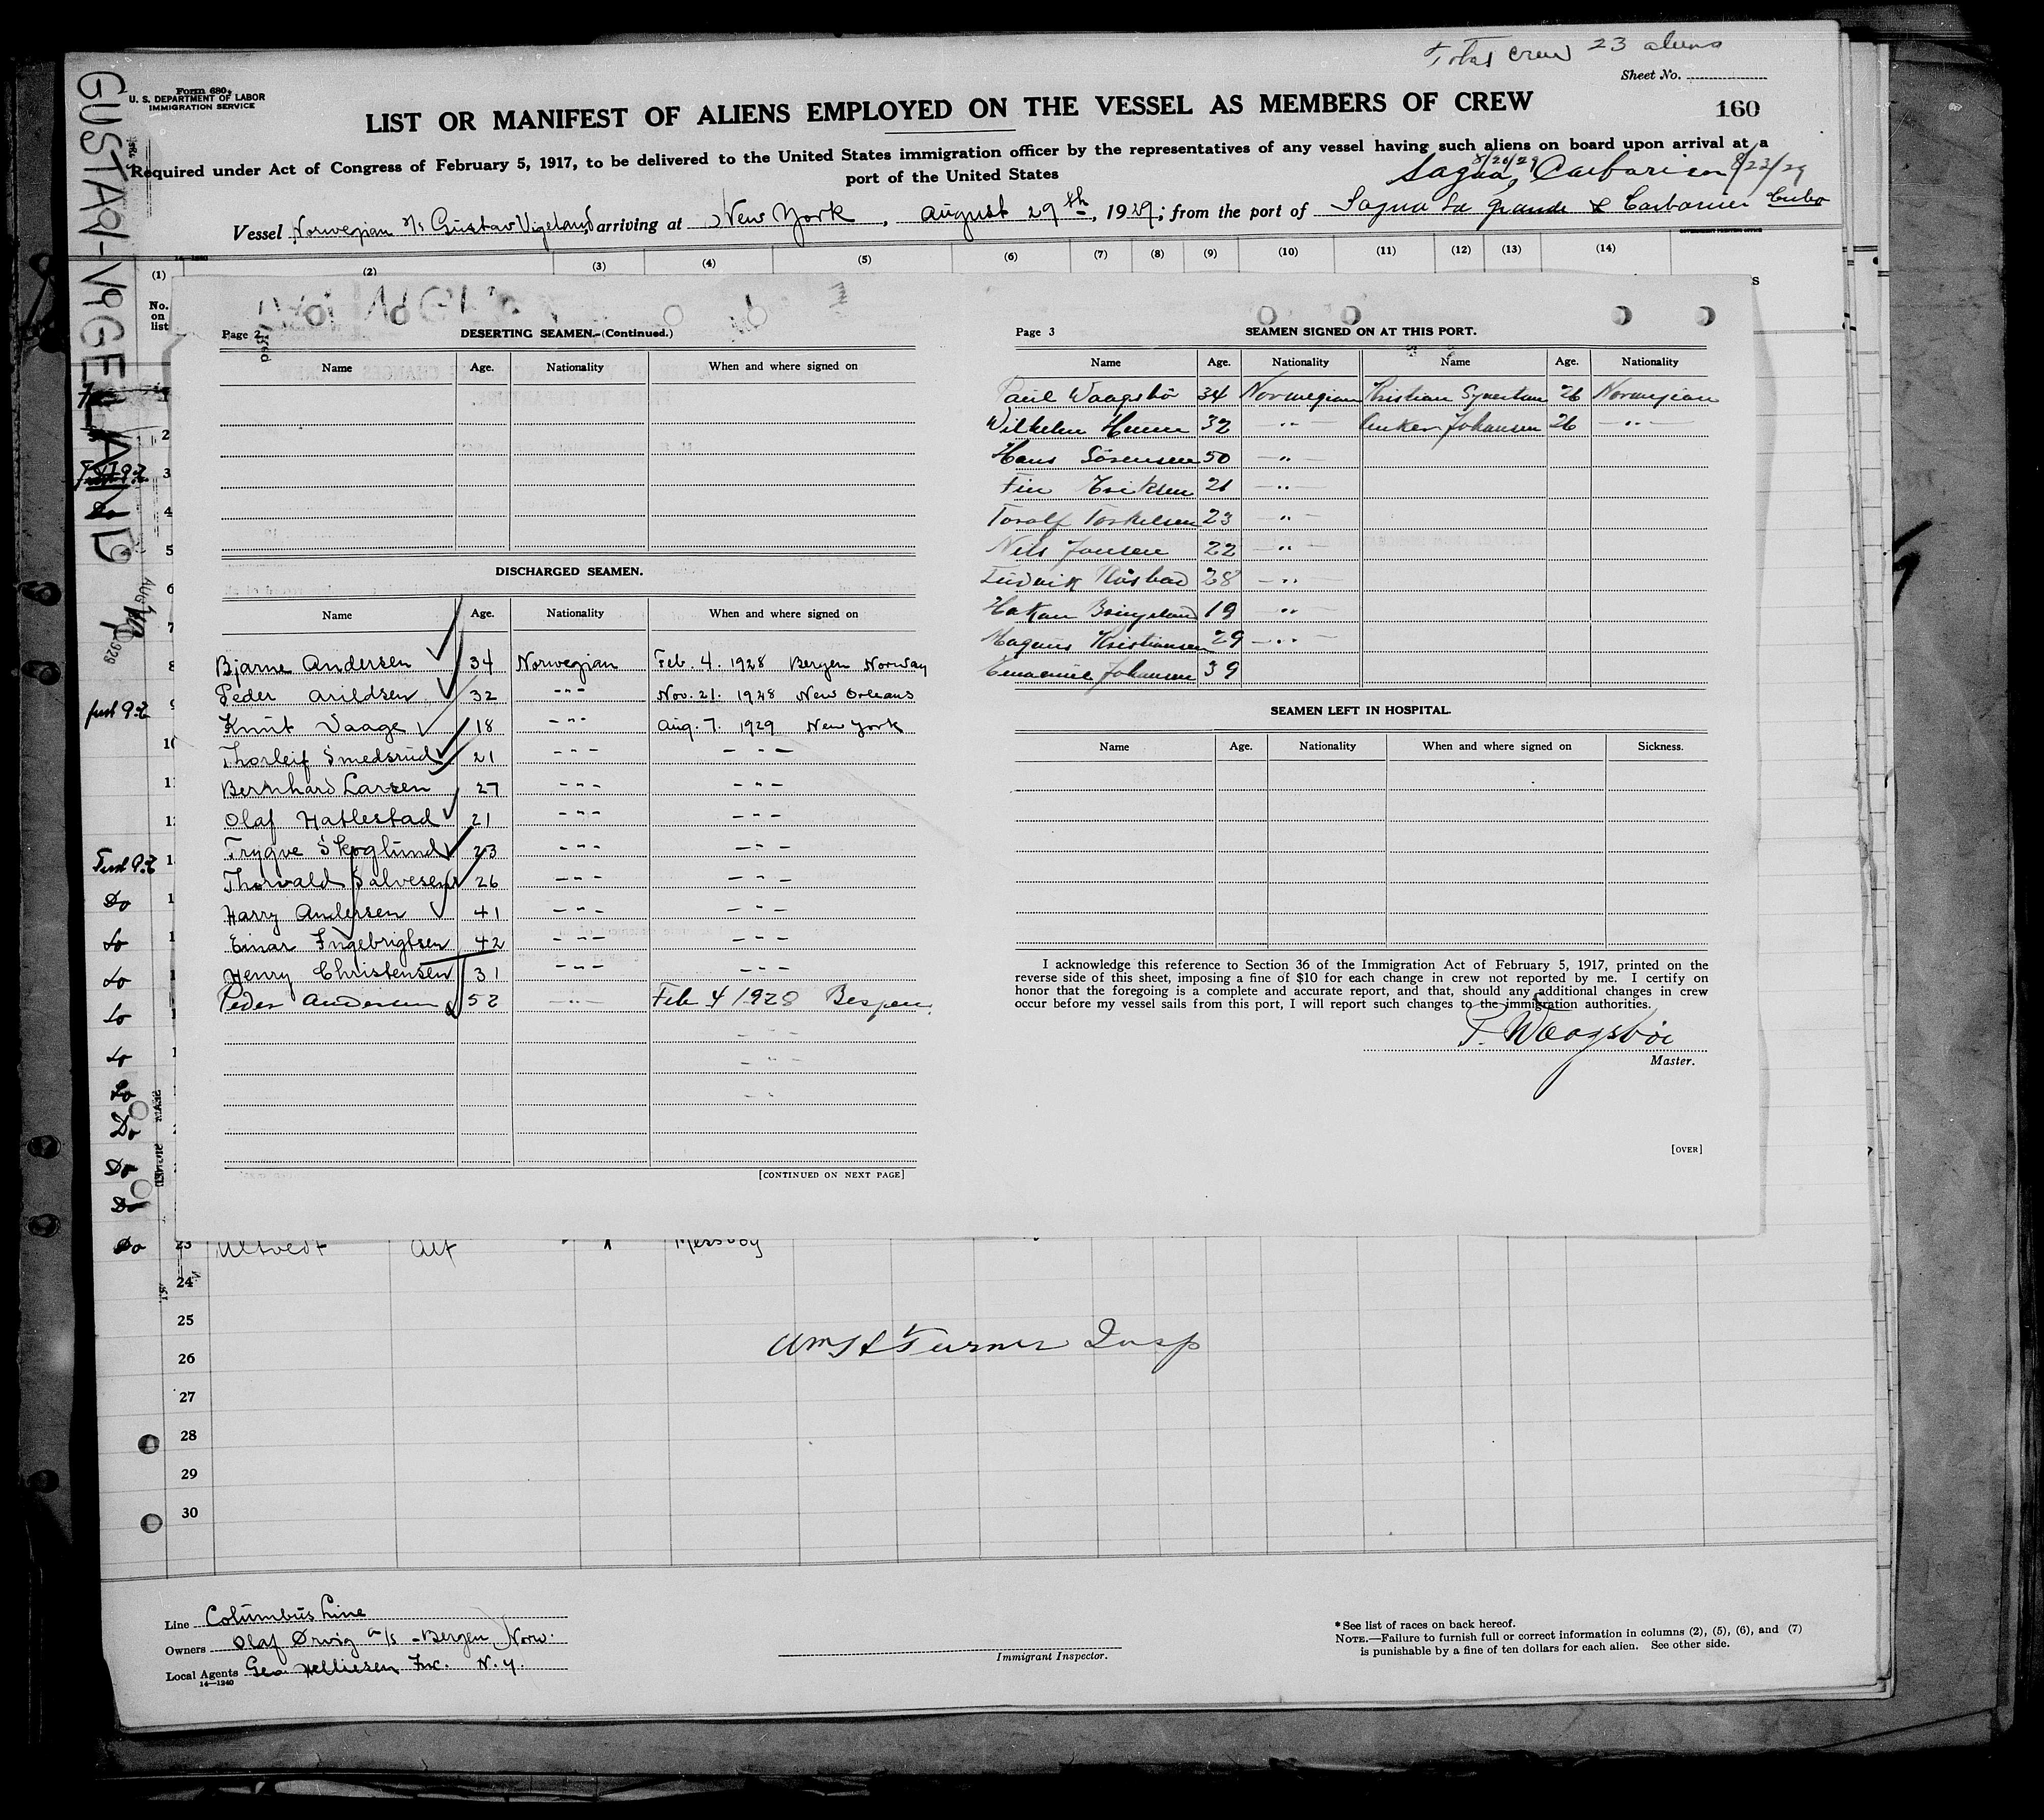 Total crew 23 aliens
Form 680
U. S. DEPARTMENT OF LABOR
IMMIGRATION SERVICE
Sheet No.
160
LIST OR MANIFEST OF ALIENS EMPLOYED ON THE VESSEL AS MEMBERS OF CREW
Required under Act of Congress of February 5, 1917, to be delivered to the United States immigration officer by the representatives of any vessel having such aliens on board upon arrival at a
port of the United States
8/20/29
Sagua, Caibarien 8/23/29
Vessel Norwegian S/S Gustav Vigeland, arriving at New York, August 29th, 1929; from the port of Sagua La Grande & Caibarien Cuba
GUSTAV VIGELAND
(1) (2) (3) (4) (5) (6) (7) (8) (9) (10) (11) (12) (13) (14)
No. on list
Page 2
DESERTING SEAMEN.—(Continued.)
Name Age. Nationality When and where signed on
DISCHARGED SEAMEN.
Name Age. Nationality When and where signed on
Bjarne Andersen 34 Norwegian Feb. 4. 1928 Bergen Norway
Peder Arildsen 32 -"- Nov. 21. 1928 New Orleans
Knut Vaage 18 -"- Aug. 7. 1929 New York
Thorleif Smedsrud 21 -"- -"-
Bernhard Larsen 27 -"- -"-
Olaf Hatlestad 21 -"- -"-
Trygve Skoglund 23 -"- -"-
Thorvald Salvesen 26 -"- -"-
Harry Andersen 41 -"- -"-
Einar Ingebrigtsen 42 -"- -"-
Henry Christensen 31 -"- -"-
Peder Andersen 52 -"- Feb 4 1928 Bergen
[CONTINUED ON NEXT PAGE]
Page 3
SEAMEN SIGNED ON AT THIS PORT.
Name Age. Nationality Name Age. Nationality
Paul Waagsbö 34 Norwegian Kristian Syvertsen 26 Norwegian
Wilhelm 32 -"- Anker Johansen 26 -"-
Hans Sörensen 50 -"-
Fin Eriksen 21 -"-
Toralf Torkelsen 23 -"-
Nils Jansen 22 -"-
28 -"-
Hakan 19 -"-
Magnus Kristiansen 29 -"-
Johansen 39
SEAMEN LEFT IN HOSPITAL.
Name Age. Nationality When and where signed on Sickness.
I acknowledge this reference to Section 36 of the Immigration Act of February 5, 1917, printed on the
reverse side of this sheet, imposing a fine of $10 for each change in crew not reported by me. I certify on
honor that the foregoing is a complete and accurate report, and that, should any additional changes in crew
occur before my vessel sails from this port, I will report such changes to the immigration authorities.
P. Waagsböe
Master.
[OVER]
23 Ultvedt Alf Messboy
24
25
26
27
28
29
30
Turner Insp
Line Columbus Line
Owners Olaf Ørvig A/S - Bergen, Norw.
Local Agents Geo Helliesen Inc. N.Y.
14—1240
Immigrant Inspector.
* See list of races on back hereof.
NOTE.—Failure to furnish full or correct information in columns (2), (5), (6), and (7)
is punishable by a fine of ten dollars for each alien. See other side.